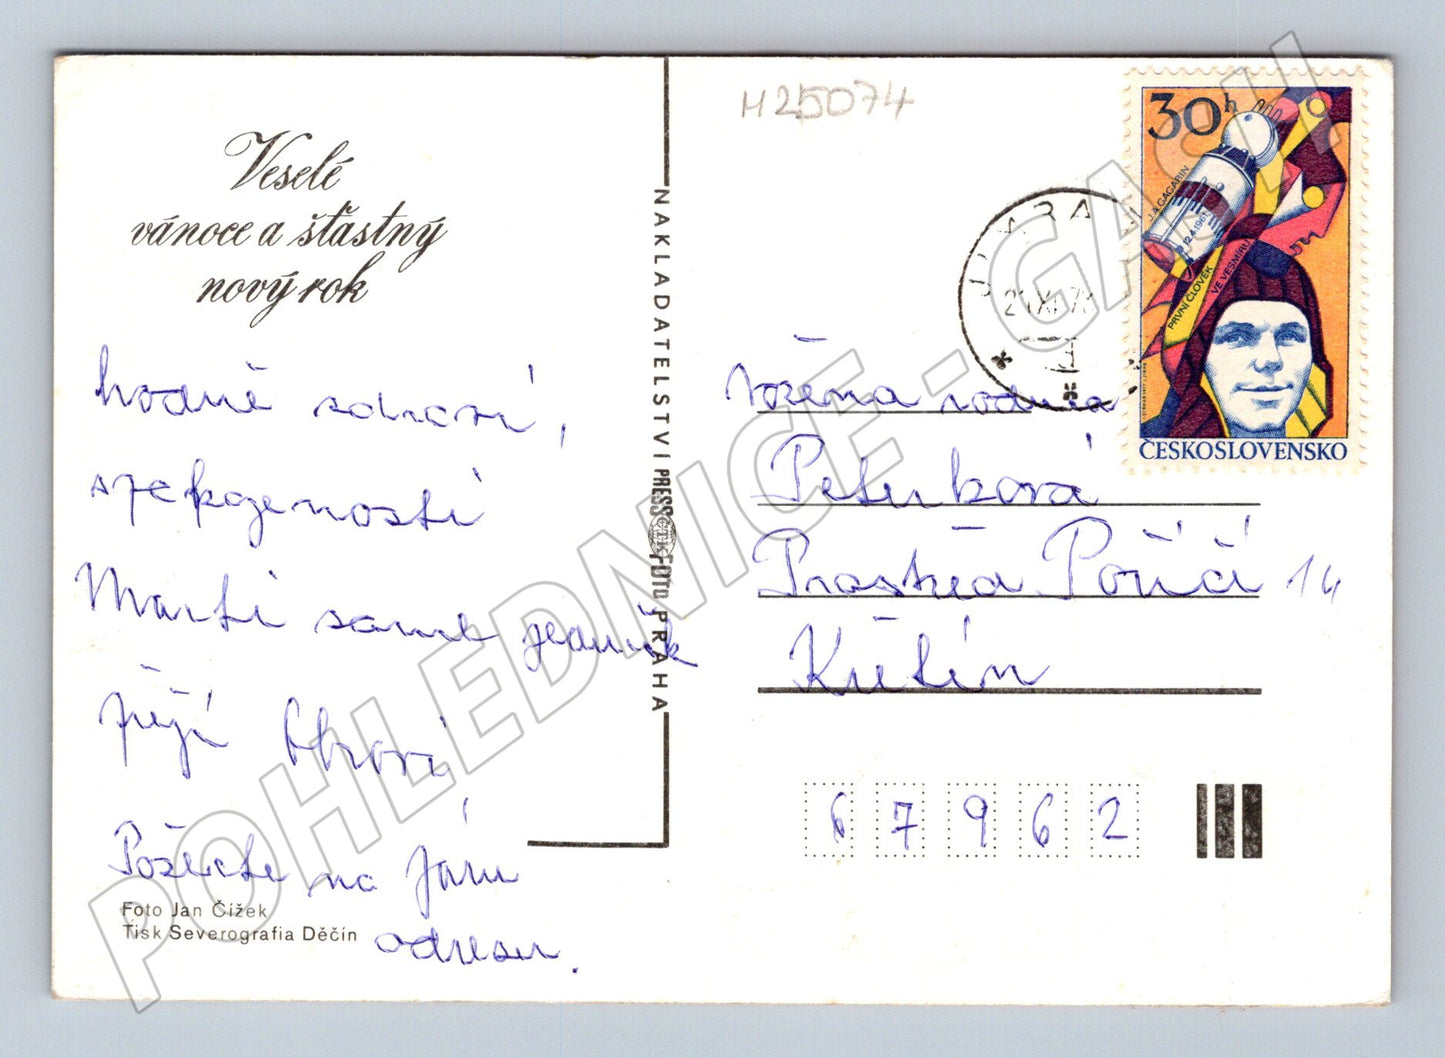 Veselé
vánoce a šťastný
nový rok
hodně zdraví,
spokojenosti
Marti samé jedniček
přejí
Pošlete na Járu
adresu.
Foto Jan Čížek
Tisk Severografia Děčín
NAKLADATELSTVÍ PRESSFOTO PRAHA
ČTK
H25074
30h
J.A.GAGARIN
12.4.1961
PRVNÍ ČLOVĚK
VE VESMÍRU
ČESKOSLOVENSKO
Vážená rodina
Peterková
Prostřed Poříčí 14
Křetín
67962
POHLEDNICE - GASH